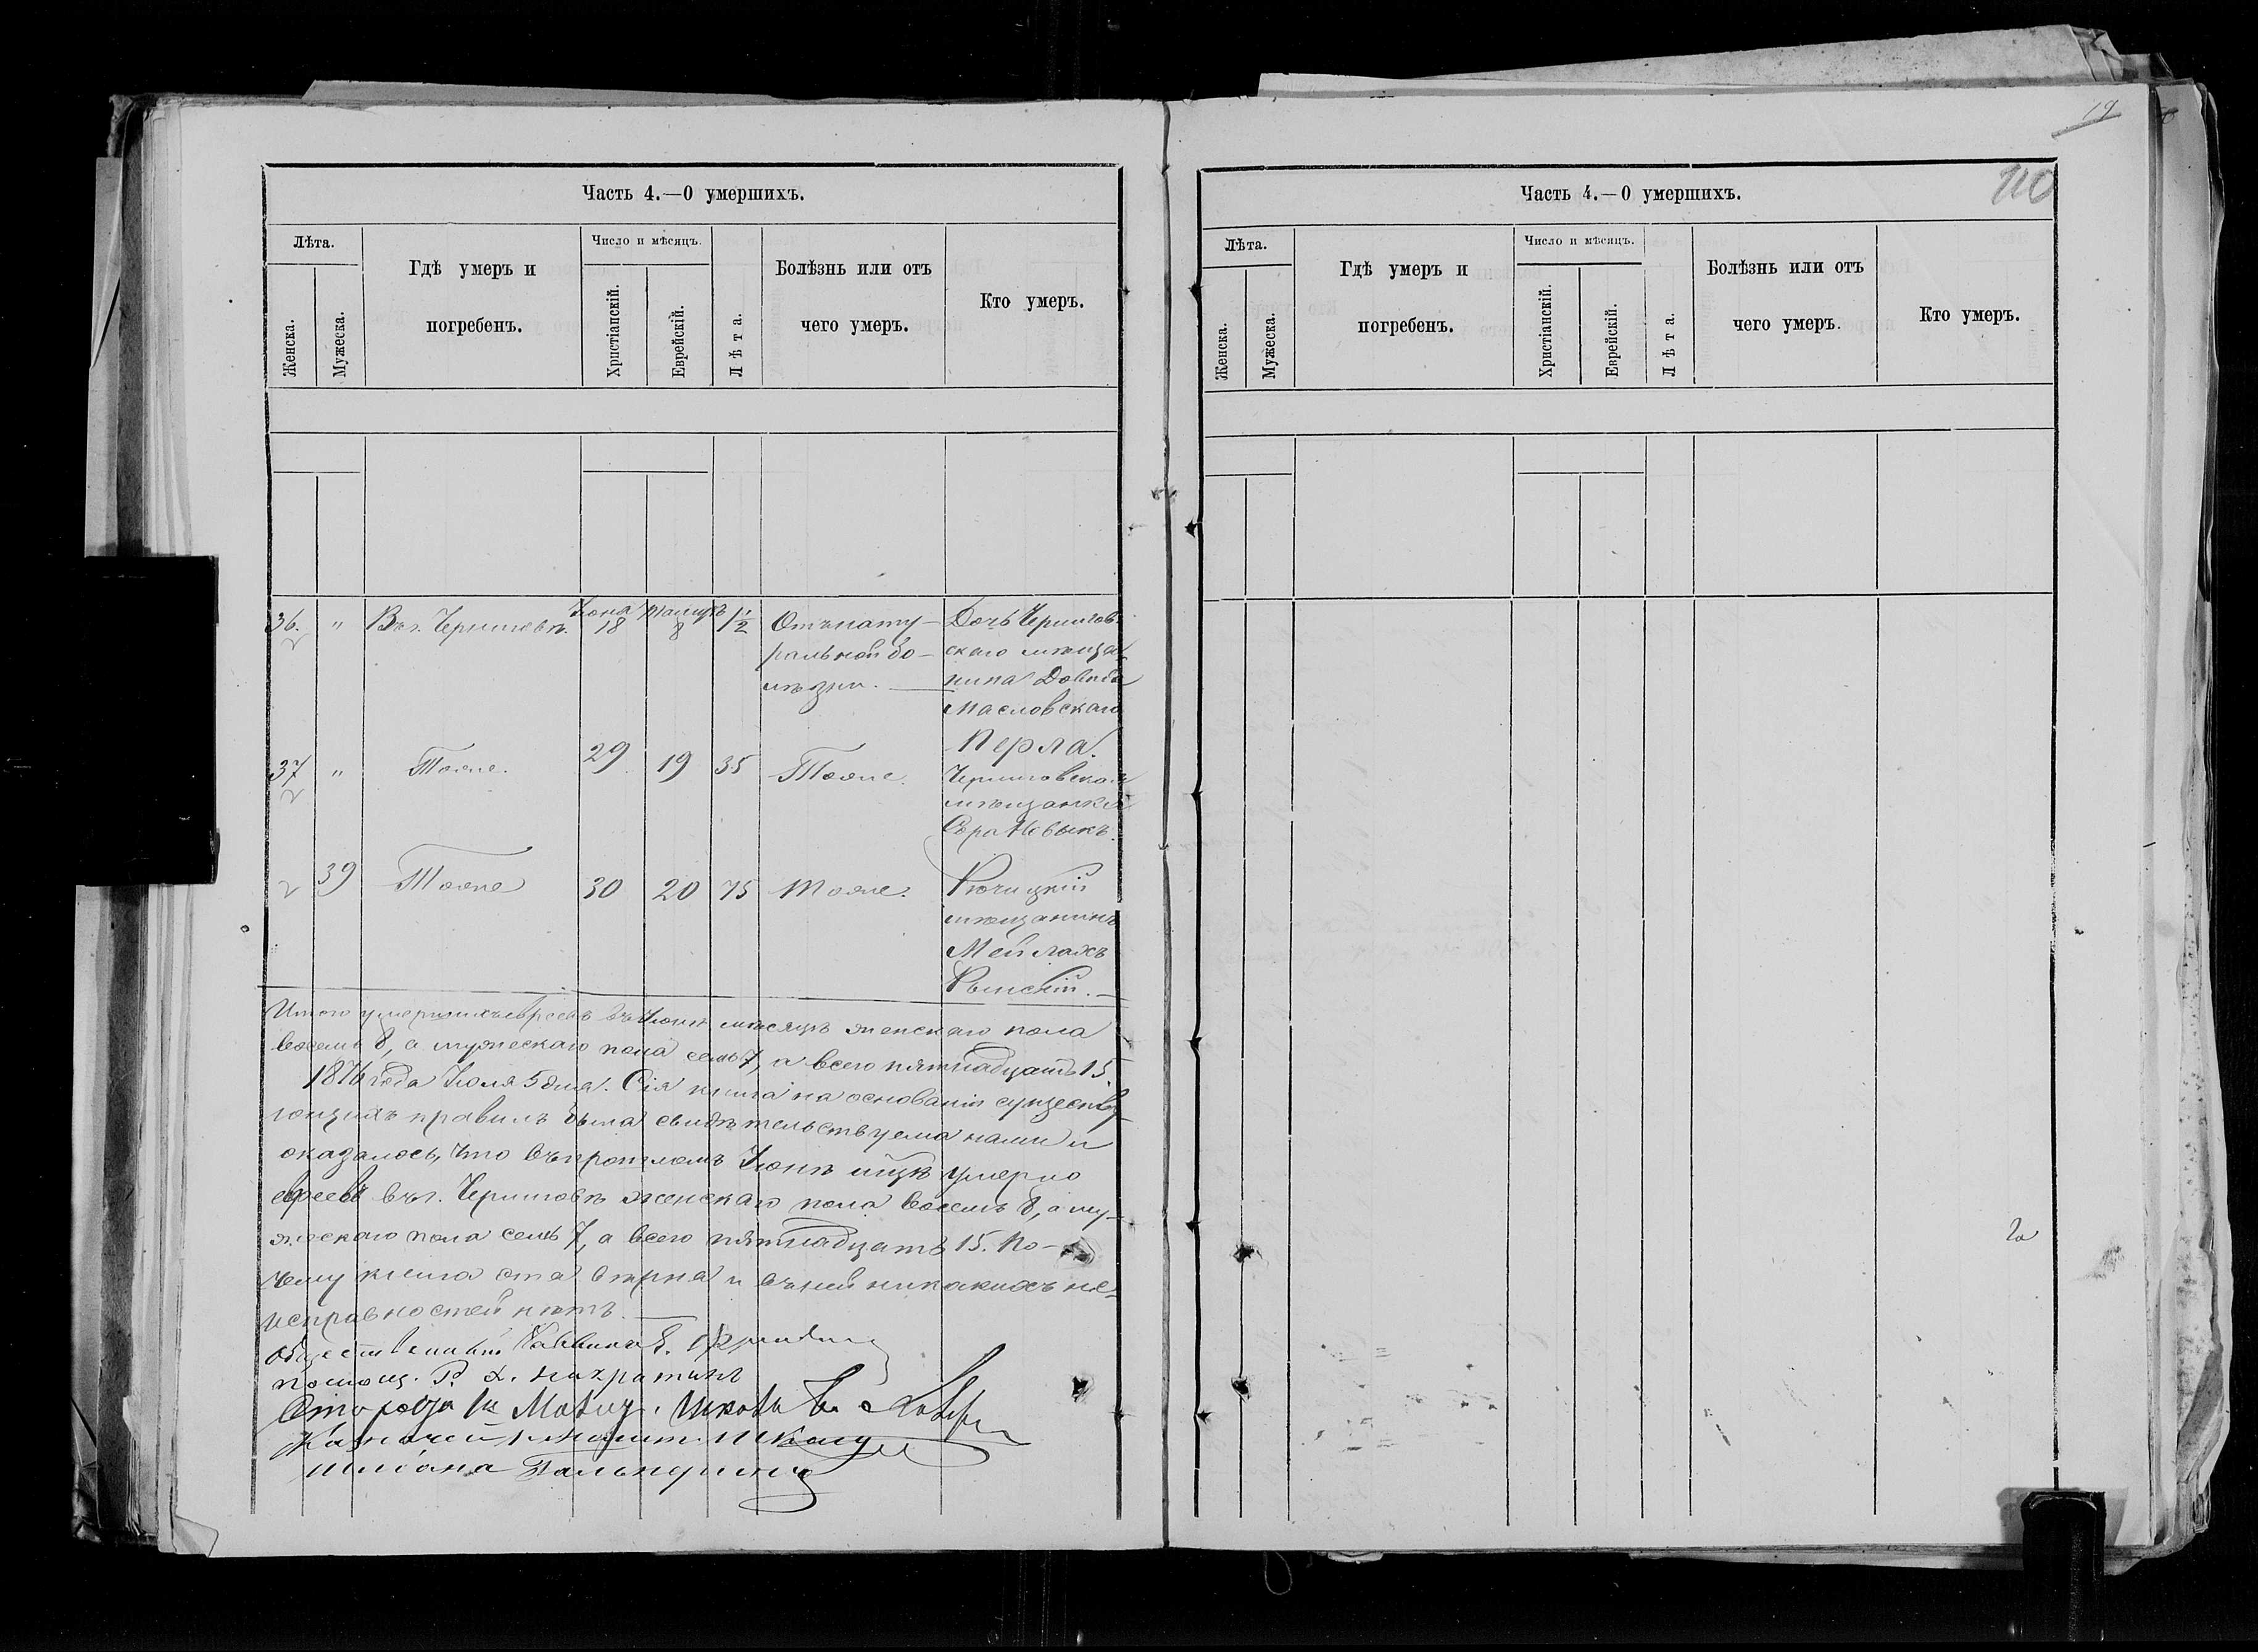 19
110
Часть 4.—О умершихъ.
Лѣта.
Женска.
Мужеска.
Гдѣ умеръ и
погребенъ.
Число и мѣсяцъ.
Христіанскій.
Еврейскій.
Лѣта.
Болѣзнь или отъ
чего умеръ.
Кто умеръ.
36. " Въ г. Черниговѣ. Іюня 18 Тамузъ 8 1½ Отъ нату-
ральной бо-
лѣзни.
Дочь Чернигов-
скаго мѣща-
нина Довида
Масловскаго
Перла.
37 " Тоже. 29 19 35 Тоже. Черниговская
мѣщанка
Сора Новыкъ.
39 Тоже 30 20 75 Тоже. Рѣчицкій
мѣщанинъ
Мейлахъ
Итого умершихъ евреевъ въ Іюнѣ мѣсяцѣ женскаго пола
восемь 8, а мужескаго пола семь 7, а всего пятнадцать 15.
1876 года Іюля 5 дня. Сія книга на основаніи существу-
ющихъ правилъ была свидѣтельствуема нами и
оказалось, что въ прошломъ Іюнѣ м̃цѣ умерло
евреевъ въ г. Черниговѣ женскаго пола восемь 8, а му-
жескаго пола семь 7, а всего пятнадцать 15. По-
чему книга ета вѣрна и въ ней никакихъ не-
исправностей нѣтъ.
Общественный Раввинъ
помощ. Р.
Староста
Казначей
Часть 4.—О умершихъ.
Лѣта.
Женска.
Мужеска.
Гдѣ умеръ и
погребенъ.
Число и мѣсяцъ.
Христіанскій.
Еврейскій.
Лѣта.
Болѣзнь или отъ
чего умеръ.
Кто умеръ.